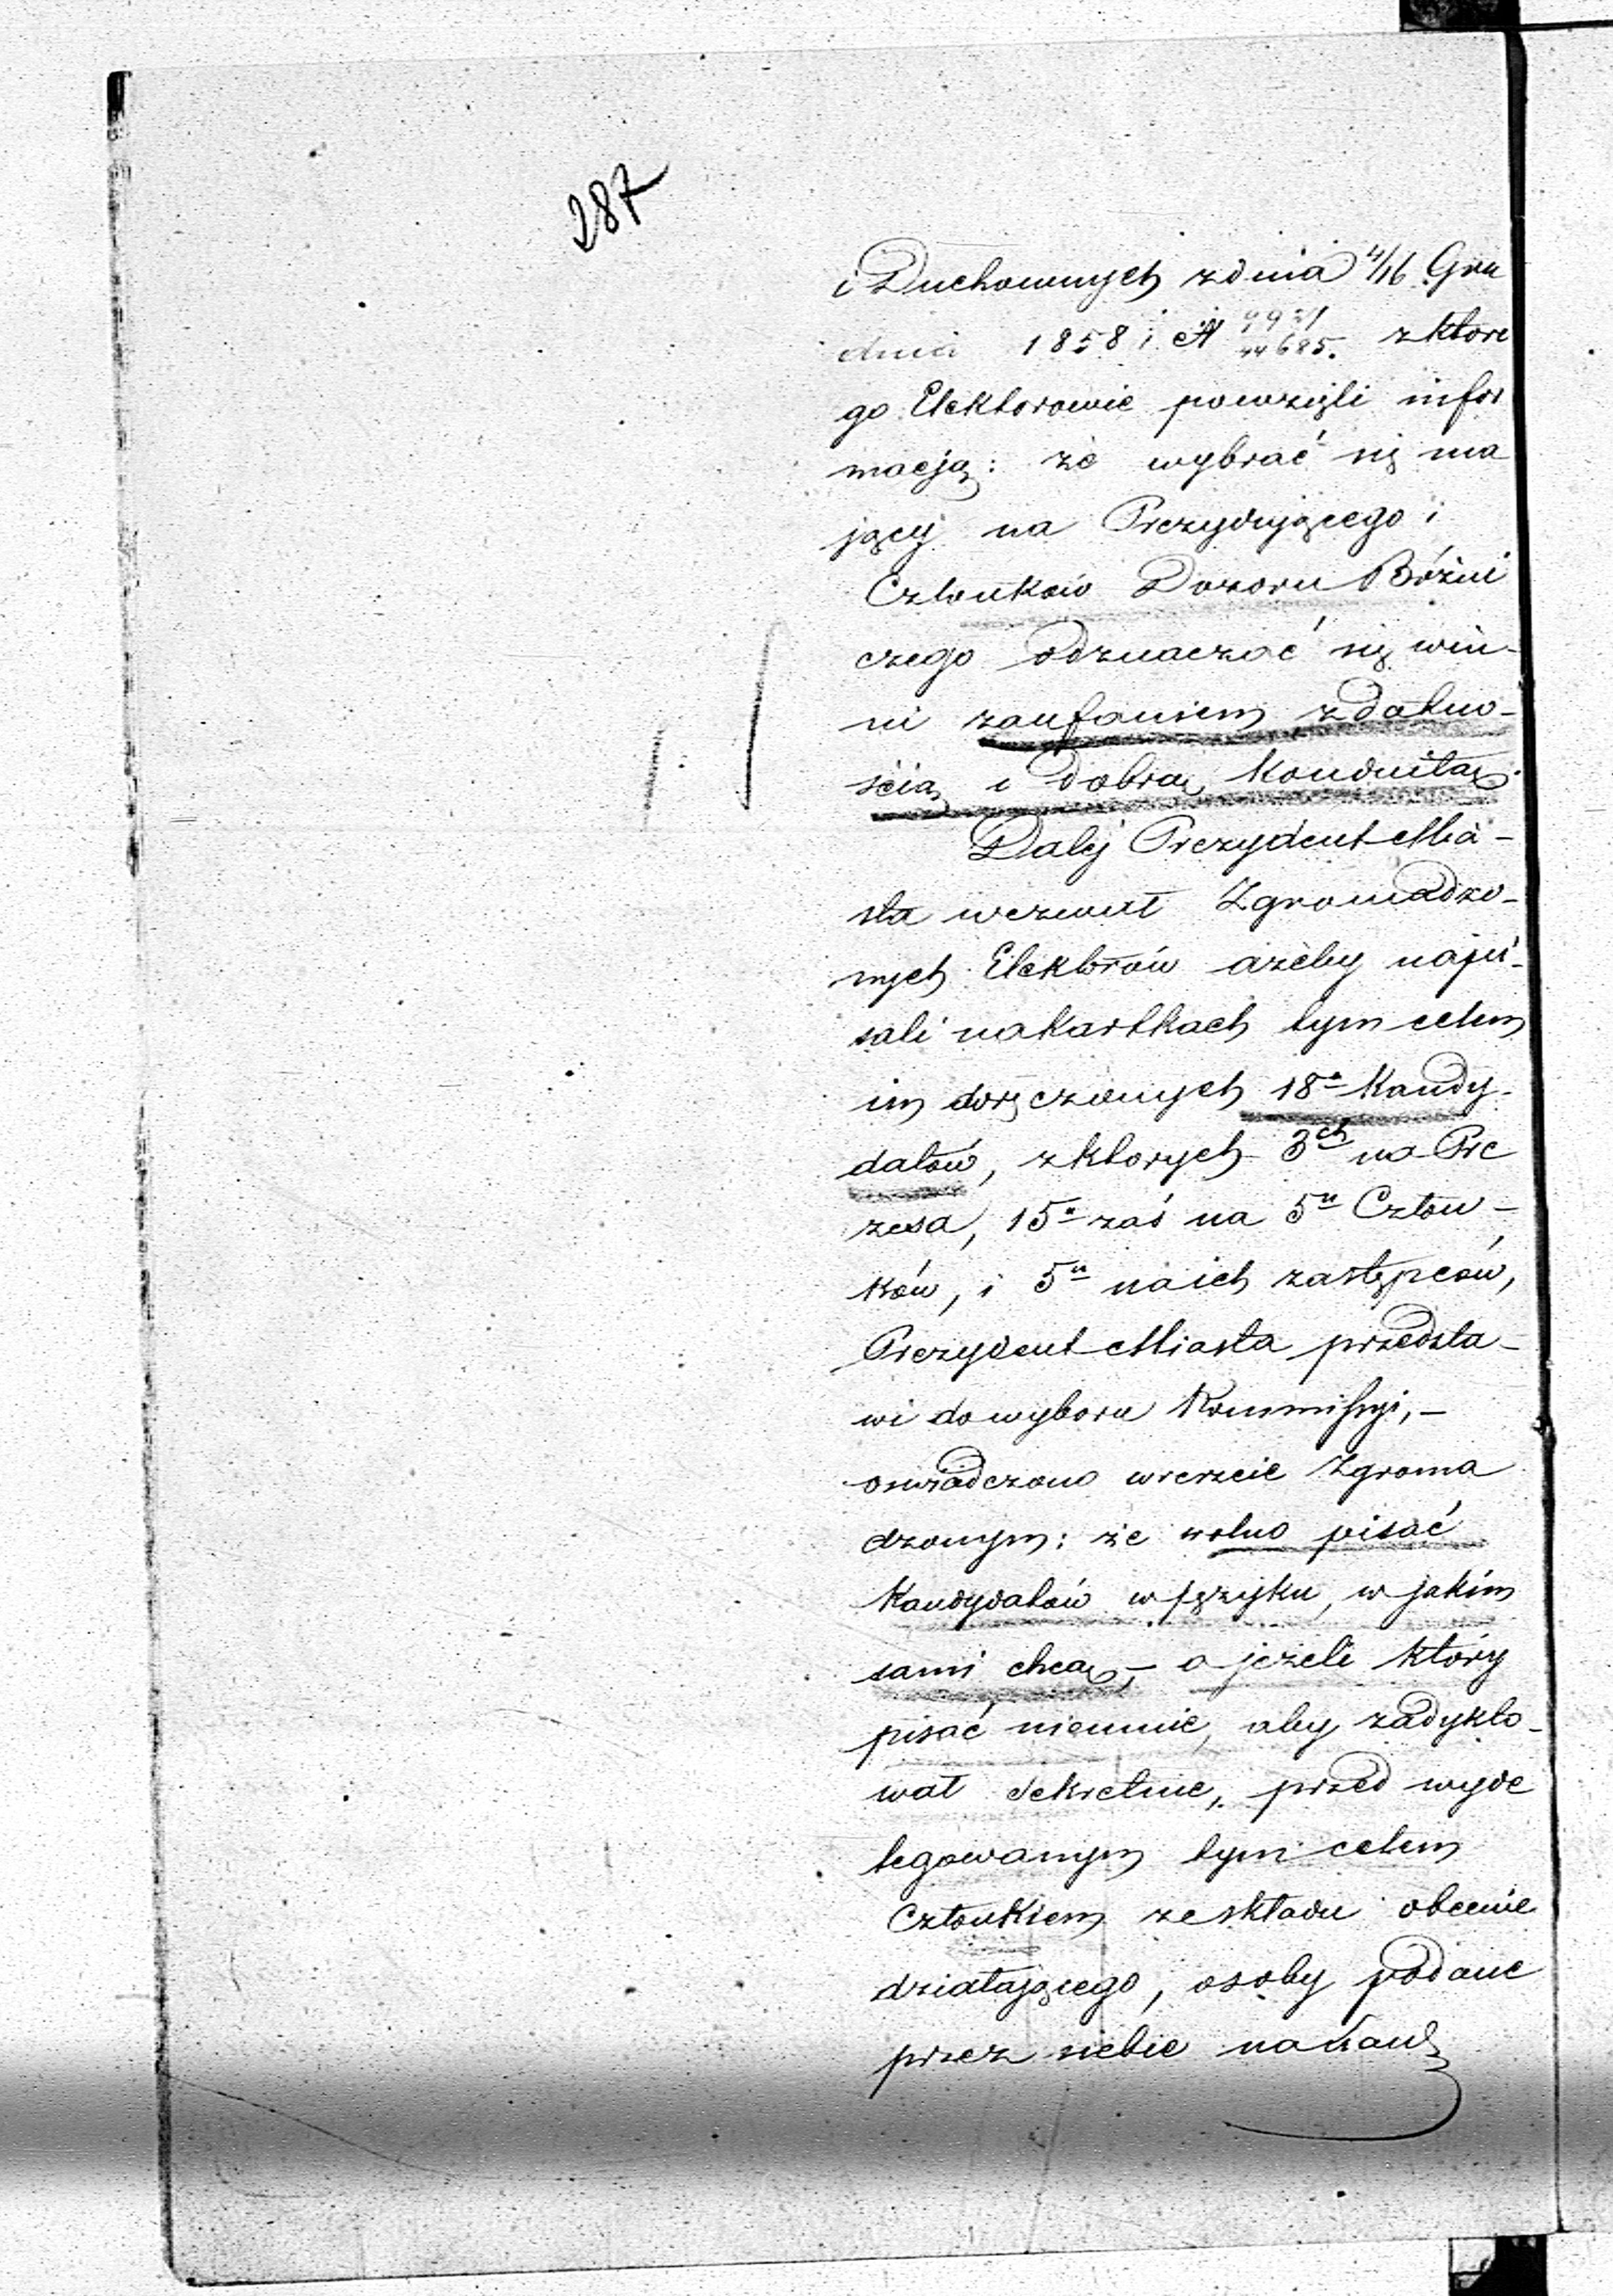 287
i Duchownych z dnia 4/16 Gru
dnia 1858 r. N 9921/44685. z które
go Elektorowie powzięli infor
macją: że wybrać się ma
jący na Prezydującego i
Członków Dozoru Bóżni
czego odznaczać się win-
ni zaufaniem zdatno-
ścią i dobrą konduitą.
Dalej Prezydent Mia-
sta wezwał Zgromadzo-
nych Elektorów ażeby napi-
sali na kartkach tym celem
im doręczonych 18u Kandy-
datów, z których 3ch na Pre
zesa, 15u zaś na 5u Człon-
ków, i 5u na ich zastępców,
Prezydent Miasta przedsta-
wi do wyboru Kommissyi, -
oswiadczono wreszcie Zgroma
dzonym: że wolno pisać
Kandydatów w języku, w jakim
sami chcą, - a jeżeli który
pisać nieumie, aby zadykto-
wał sekretnie, przed wyde
legowanym tym celem
Członkiem ze składu obecnie
działającego, osoby podane
przez siebie na Kand